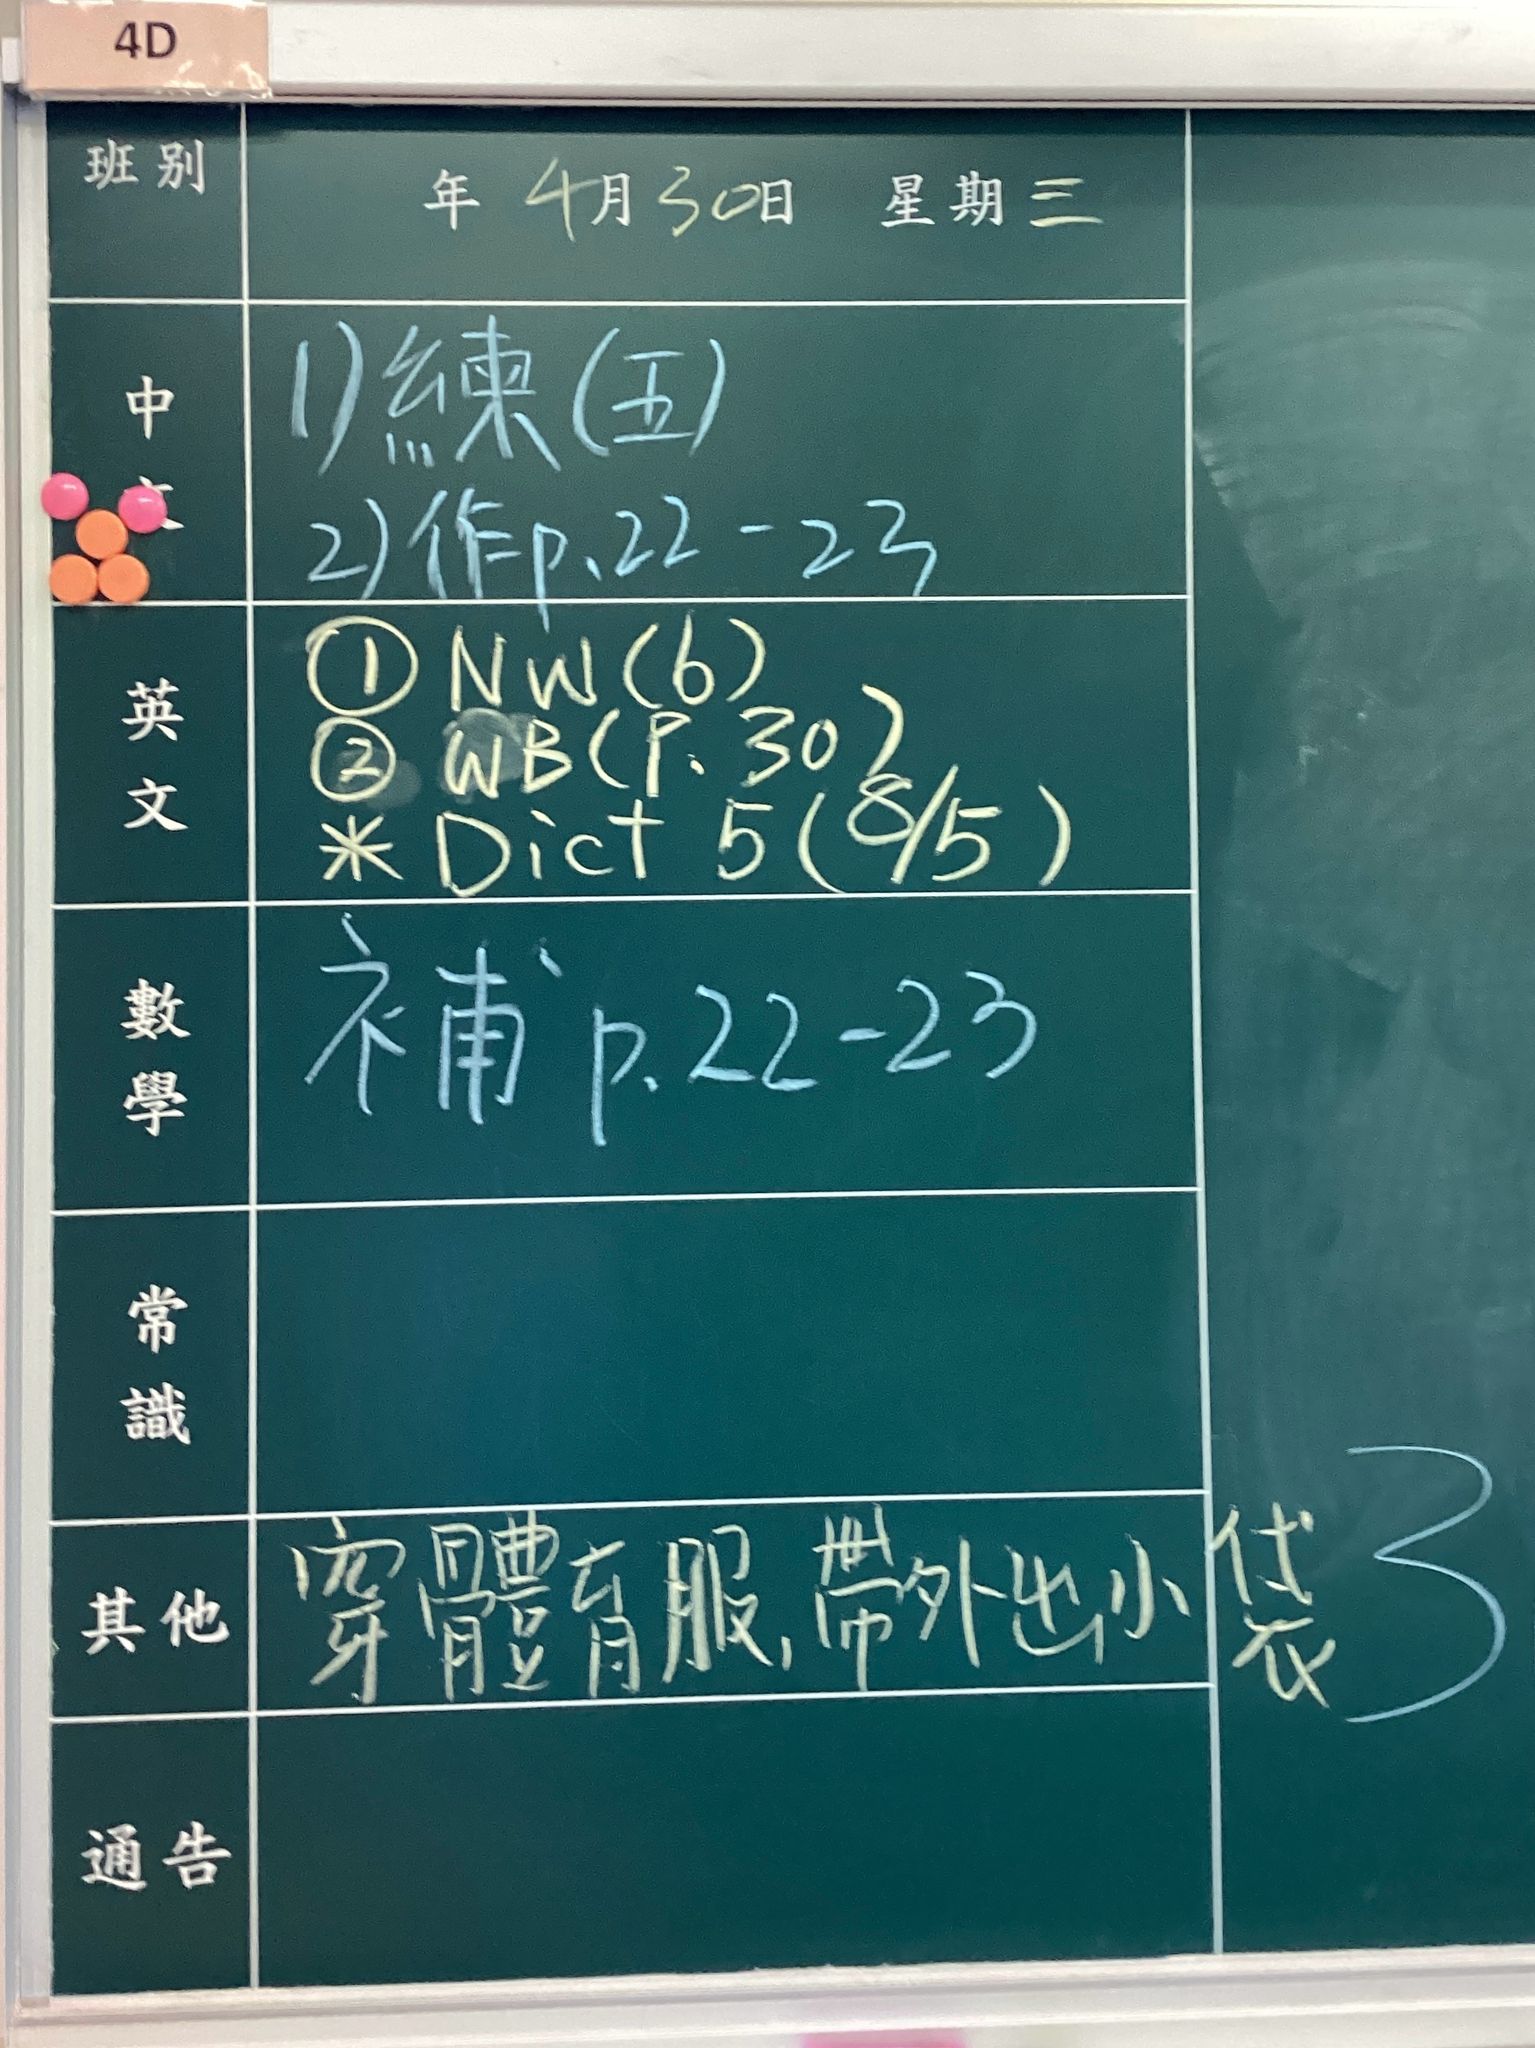 4D
班別
年 4月30日 星期三
中文
1)練(五)
2)作p.22-23
英文
① NW(6)
② WB(P.30)
* Dict 5(8/5)
數學
補 p.22-23
常識
其他
穿體育服,帶外出小袋
3
通告